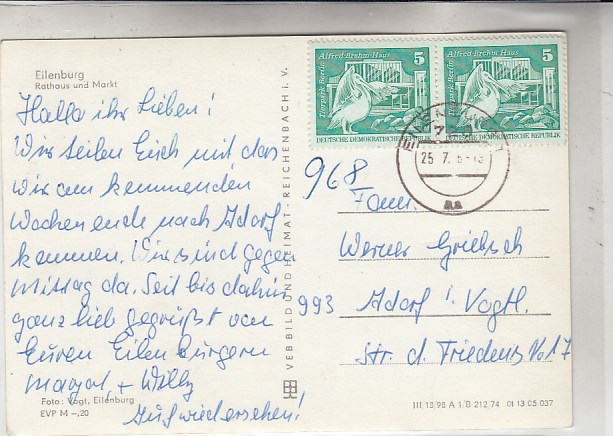 Eilenburg
Rathaus und Markt
Hallo ihr Lieben!
Wir teilen Euch mit das
wir am kommenden
Wochenende nach Adorf
kommen. Wir sind gegen
Mittag da. Seit bis dahin
ganz lieb gegrüßt von
Euren Eilenburgern
Margot + Willy
Auf wiedersehen!
Foto: Vogt, Eilenburg
EVP M –,20
VEB BILD UND HEIMAT · REICHENBACH I. V.
Alfred-Brehm-Haus 5
Tierpark Berlin
DEUTSCHE DEMOKRATISCHE REPUBLIK
Alfred-Brehm-Haus 5
Tierpark Berlin
DEUTSCHE DEMOKRATISCHE REPUBLIK
25 7.
aa
968
Fam.
Werner
993 Adorf i. Vogtl.
Str. d. Friedens No 17
III/18/98 A 1/B 212/74 01 13 05 037